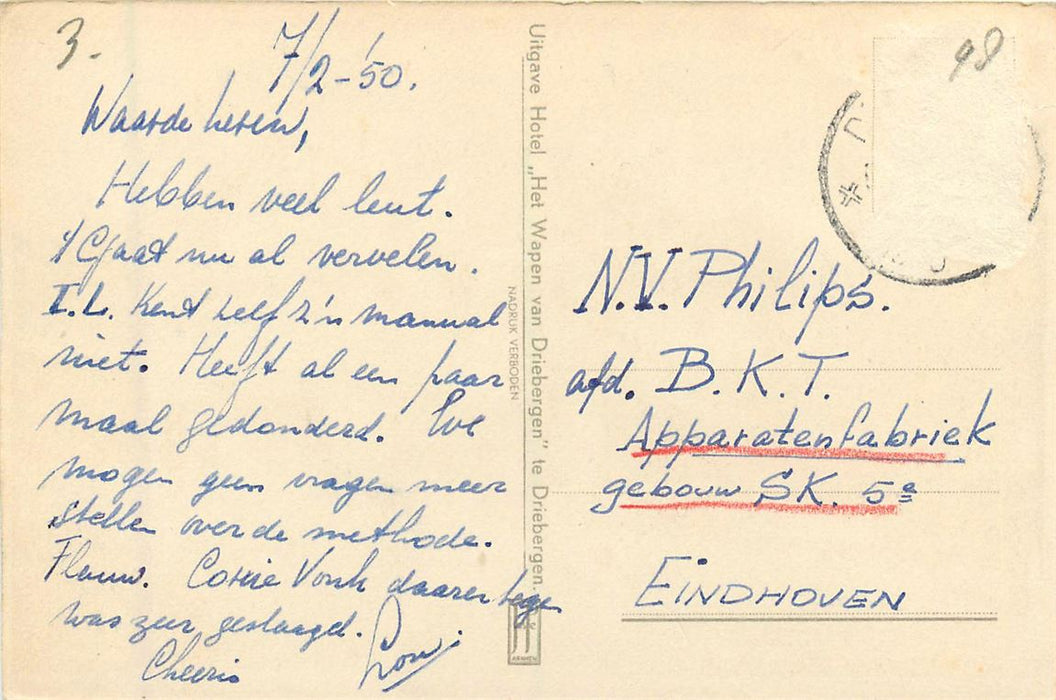 3.
7/2-'50.
Waarde heren,
Hebben veel leut.
't Gaat nu al vervelen.
I.L. kent zelf z'n manual
niet. Heeft al een paar
maal gedonderd. We
mogen geen vragen meer
stellen over de methode.
Flauw. Corrie Vonk daarentegen
was zeer geslaagd.
Cheerio
Uitgave Hotel „Het Wapen van Driebergen” te Driebergen.
NADRUK VERBODEN
JJ
ARNHEM
48
N.V. Philips.
afd. B.K.T.
Apparatenfabriek
gebouw SK. 5e
EINDHOVEN